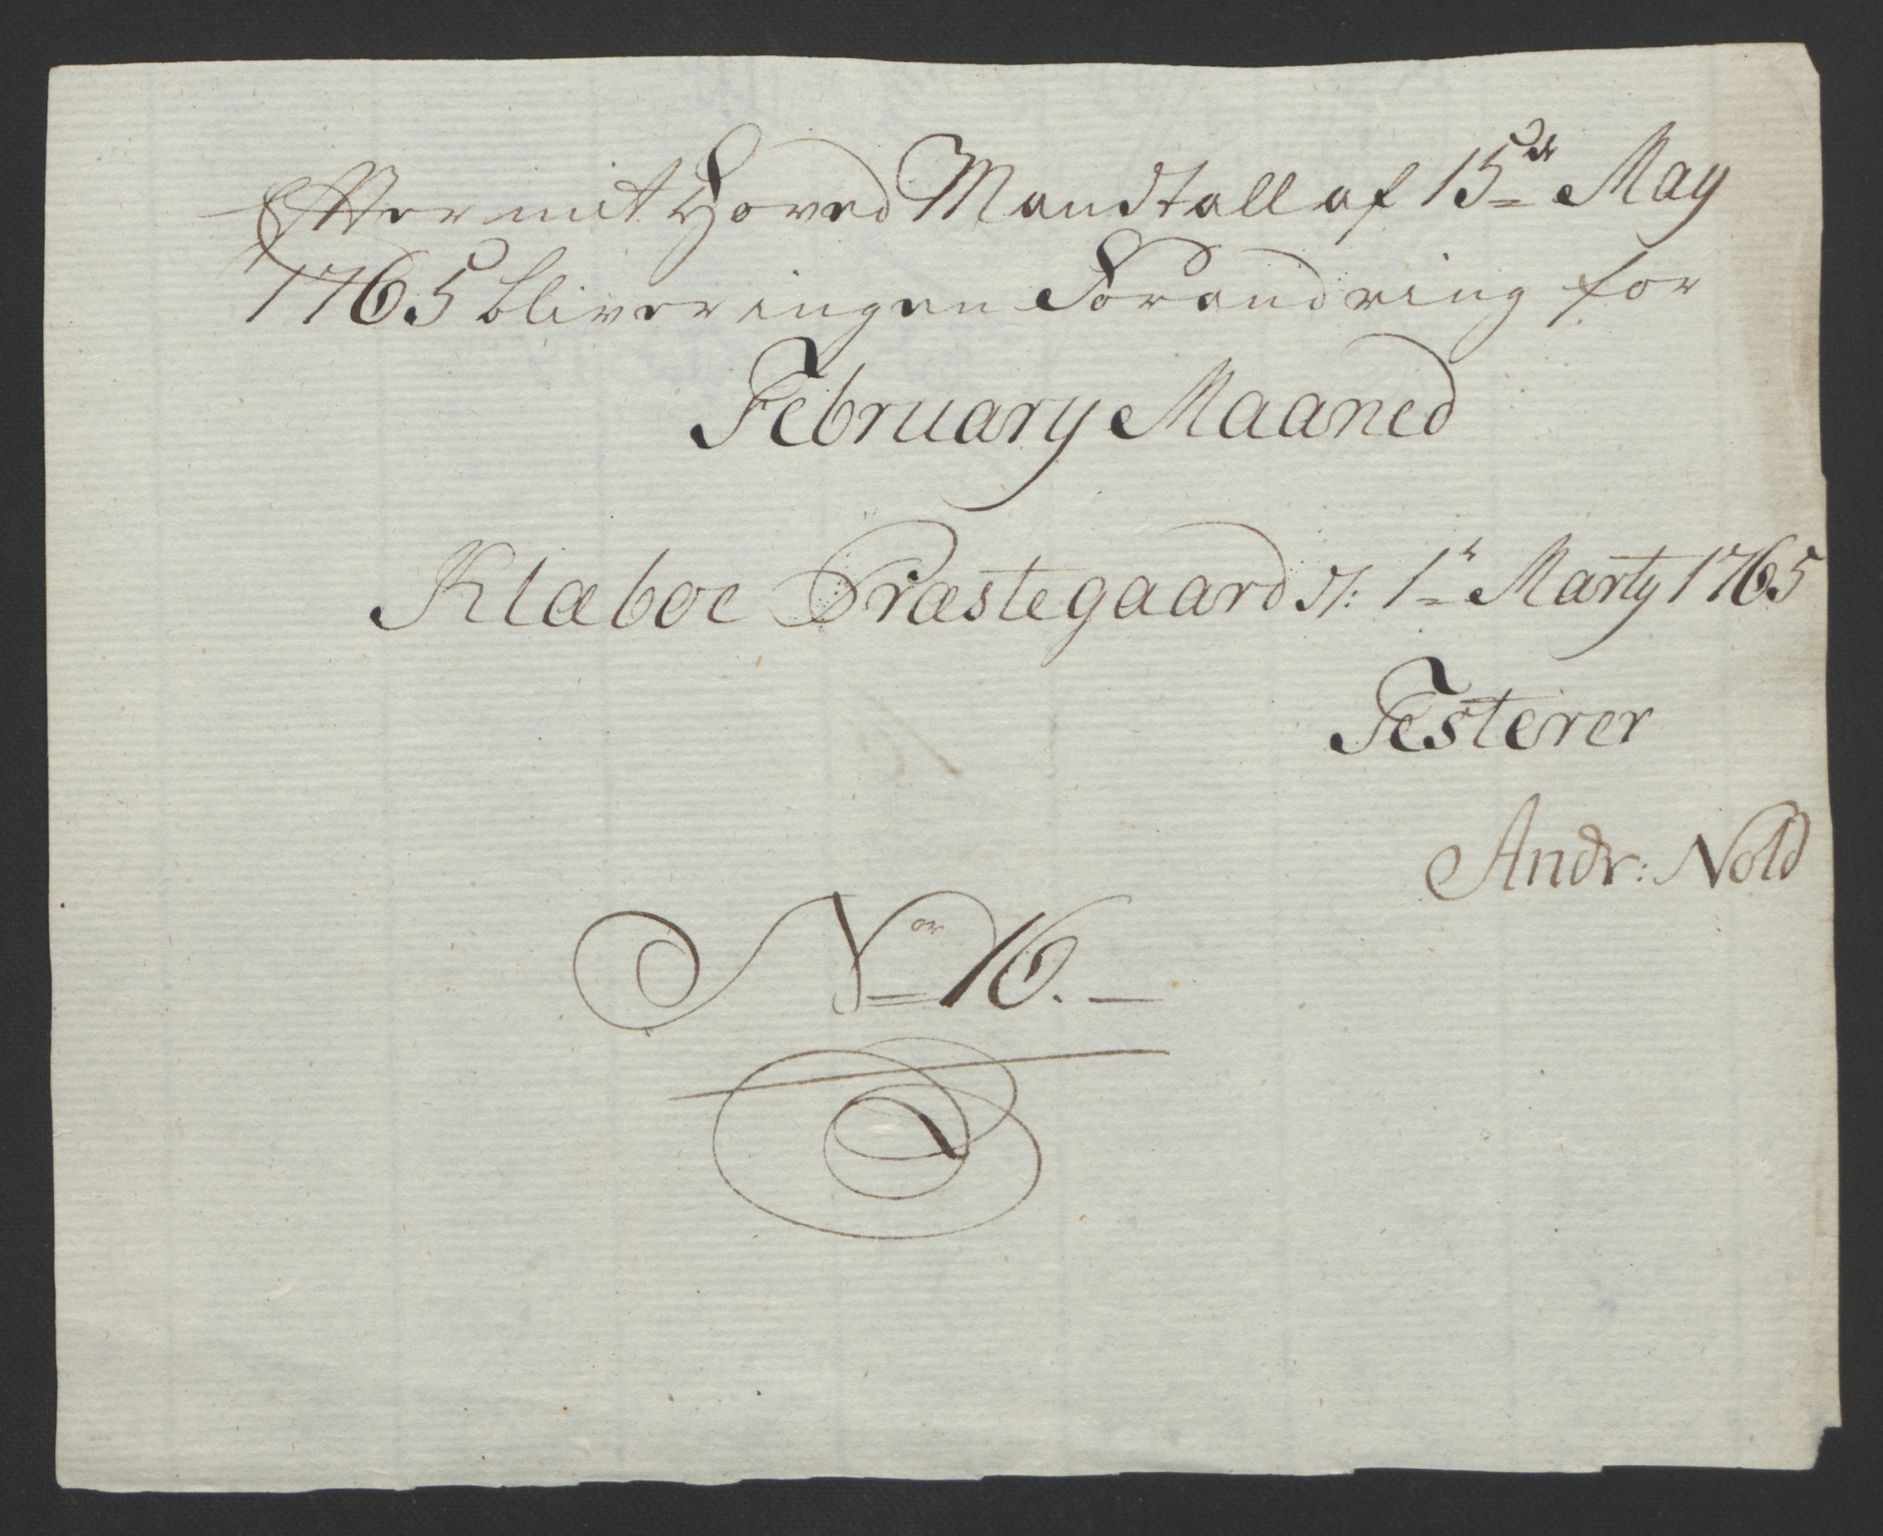 Efter mit Hoved Mandtall af 15de May
1765 bliver ingen Forandring for
February Maaned
Klæboe Præstegaard d: 1te Marty 1765
Testerer
Andr: Nold
Nor 16. —